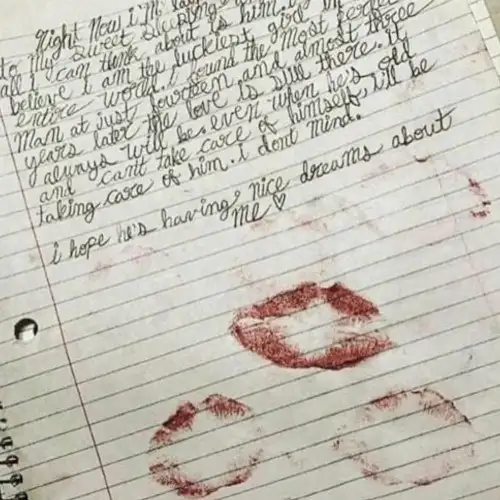 Right Now i'm
to My Sweet Sleeping
all i can think about is him. i
believe i am the luckiest girl in
entire world. i found the most perfect
man at just fourteen and almost three
years later the love is still there. it
always will be. even when he's old
and can't take care of himself, i'll be
taking care of him. i dont mind.
i hope he's having nice dreams about
me ♡